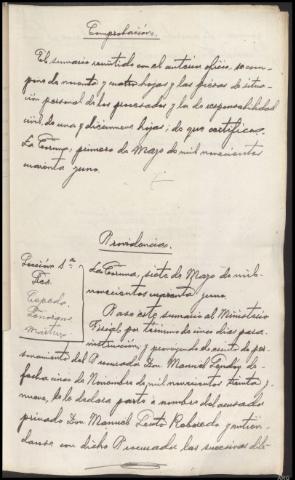 Comprobación.
El sumario remitido con el anterior oficio, se com-
pone de noventa y cuatro hojas y las piezas de situa-
ción personal de los procesados y la de responsabilidad
civil, de una y diecinueve hojas, de que certifico.
La Coruña, primero de Mayo de mil novecientos
cuarenta y uno.
Providencia.
Sección 1ª
Sres.
Cepeda
Martínez
La Coruña, siete de Mayo de mil
novecientos cuarenta y uno.
Pase este sumario al Ministerio
Fiscal, por término de cinco días para
instrucción; y proveyendo al escrito de per-
sonamiento del Procurador Don Manuel de
fecha cinco de Noviembre de mil novecientos treinta y
nueve, se le declara parte a nombre del acusador
privado Don Manuel y entién-
danse con dicho Procurador las sucesivas dili-